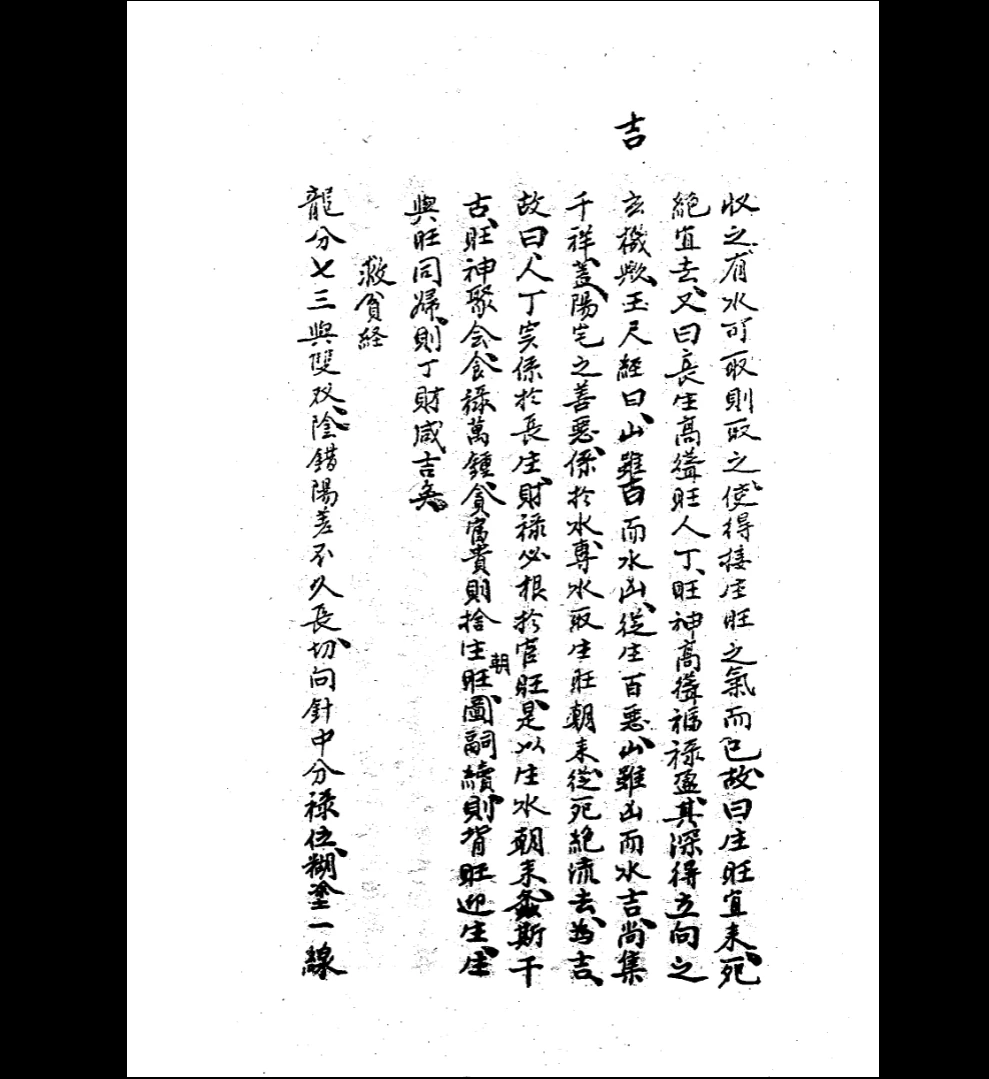 收之、有水可取則取之、使得接生旺之氣而已、故曰生旺宜来、死
絕宜去、又曰長生高聳旺人丁、旺神高聳福禄盈、其深得立向之
玄機歟、玉尺經曰、山雖吉而水凶、従生百惡、山雖凶而水吉、尚集
吉
千祥、蓋陽宅之善惡、係於水、專水取生旺朝来、従死絕流去、為吉、
故曰、人丁实係於長生、財禄必根於官旺、是以生水朝来、螽斯千
古、旺神聚会、食禄萬鍾、貪富貴則捨生旺朝、圖嗣續、則背旺迎生、生
與旺同歸、則丁財咸吉矣
救貧経
龍分七三與雙双、陰錯陽差不久長、切向針中分禄位、糊塗一線